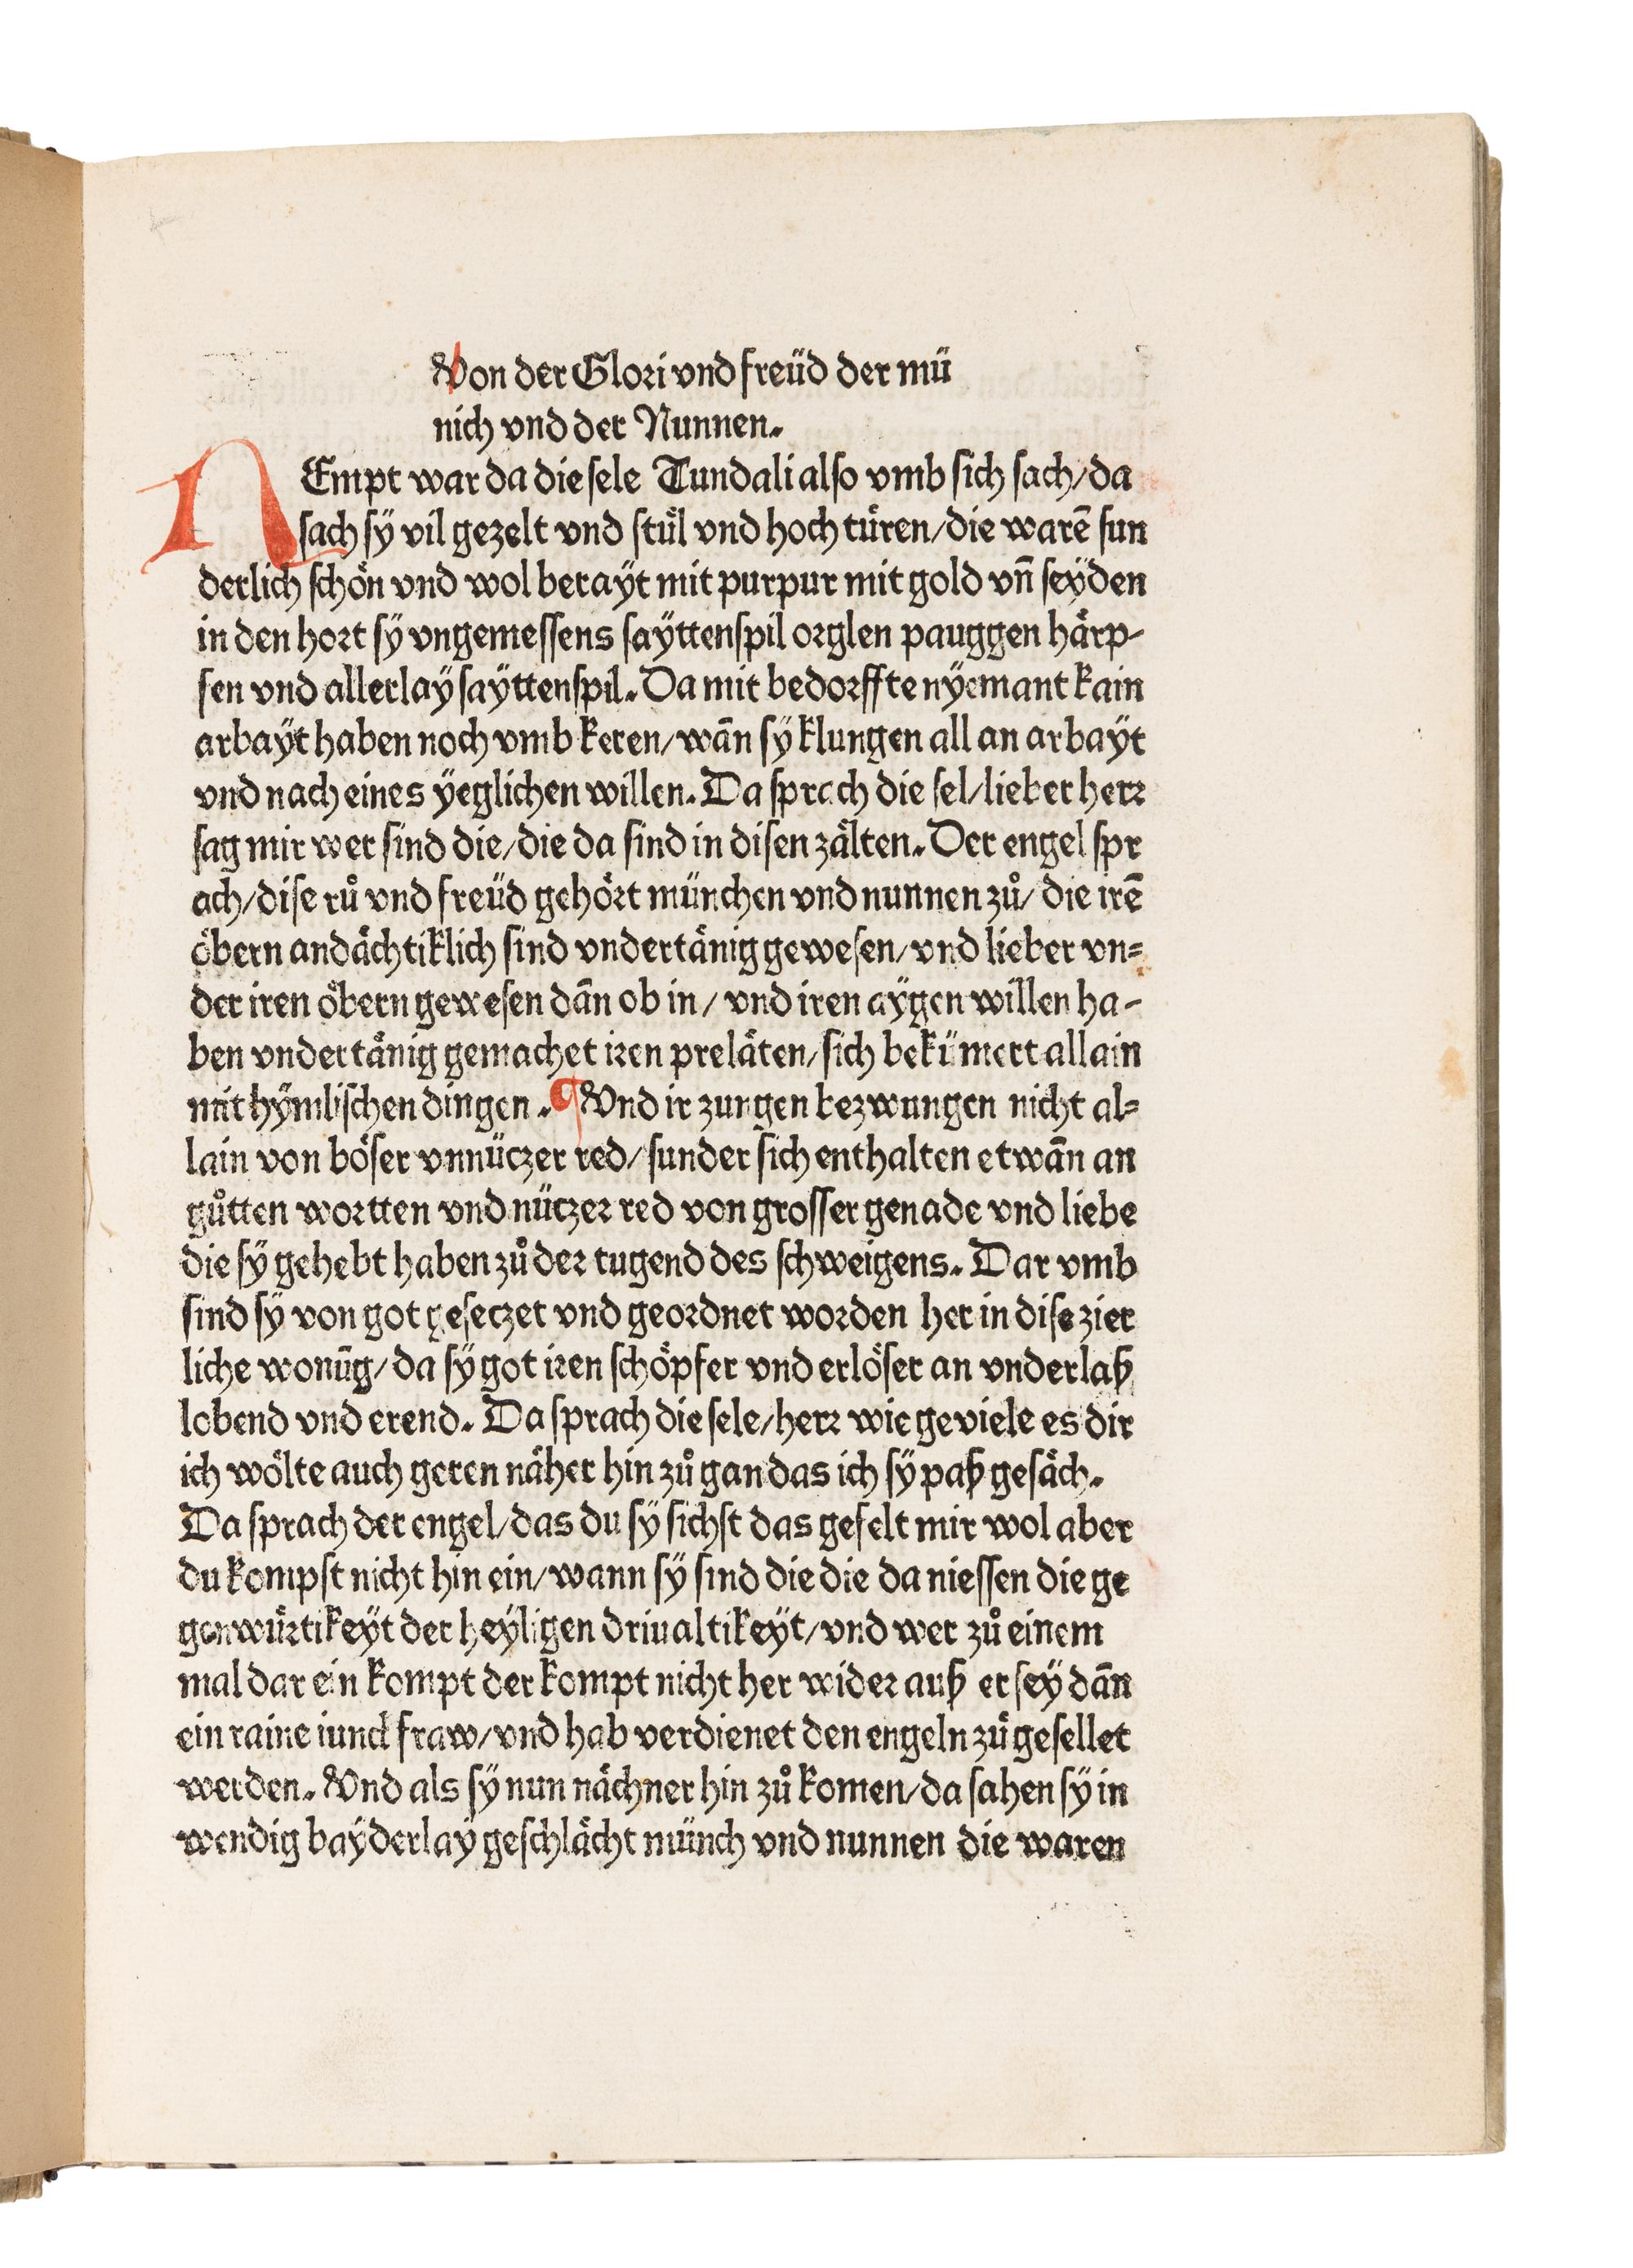 Von der Glori vnd freüd der mü
nich vnd der Nunnen.
NEmpt war da die sele Tundali also vmb sich sach/da
sach sÿ vil gezelt vnd stůl vnd hoch türen/die warē sun
derlich schön vnd wol berayt mit purpur mit gold vn̄ seÿden
in den hort sÿ vngemessens saÿttenspil orglen pauggen härp-
sen vnd allerlaÿ saÿttenspil. Da mit bedorffte nÿemant kain
arbaÿt haben noch vmb keren/wān sÿ klungen all an arbaÿt
vnd nach eines ÿeglichen willen. Da sprach die sel/lieber herr
sag mir wer sind die/die da sind in disen zälten. Der engel spr
ach/dise rů vnd freüd gehört münchen vnd nunnen zů/ die irē
öbern andächtiklich sind vndertänig gewesen/vnd lieber vn=
der iren öbern gewesen dān ob in/ vnd iren aÿgen willen ha-
ben vndertänig gemachet iren preläten/sich bekümert allain
mit hÿmlischen dingen. ¶Vnd ir zungen bezwungen nicht al=
lain von böser vnnüczer red/sunder sich enthalten etwān an
gůtten wortten vnd nüczer red von grosser genade vnd liebe
die sÿ gehebt haben zů der tugend des schweigens. Dar vmb
sind sÿ von got geseczet vnd geordnet worden her in dise zier
liche wonūg/da sÿ got iren schöpfer vnd erlöser an vnderlaß
lobend vnd erend. Da sprach die sele/herr wie geviele es dir
ich wölte auch geren näher hin zů gan das ich sÿ paß gesäch.
Da sprach der engel/das du sÿ sichst das gefelt mir wol aber
du kompst nicht hin ein/wann sÿ sind die die da niessen die ge
genwürtikeÿt der heÿligen driualtikeÿt/vnd wer zů einem
mal dar ein kompt der kompt nicht her wider auß er seÿ dān
ein raine iunckfraw/vnd hab verdienet den engeln zů gesellet
werden. Vnd als sÿ nun nächner hin zů komen/da sahen sÿ in
wendig baÿderlaÿ geschlächt münch vnd nunnen die waren